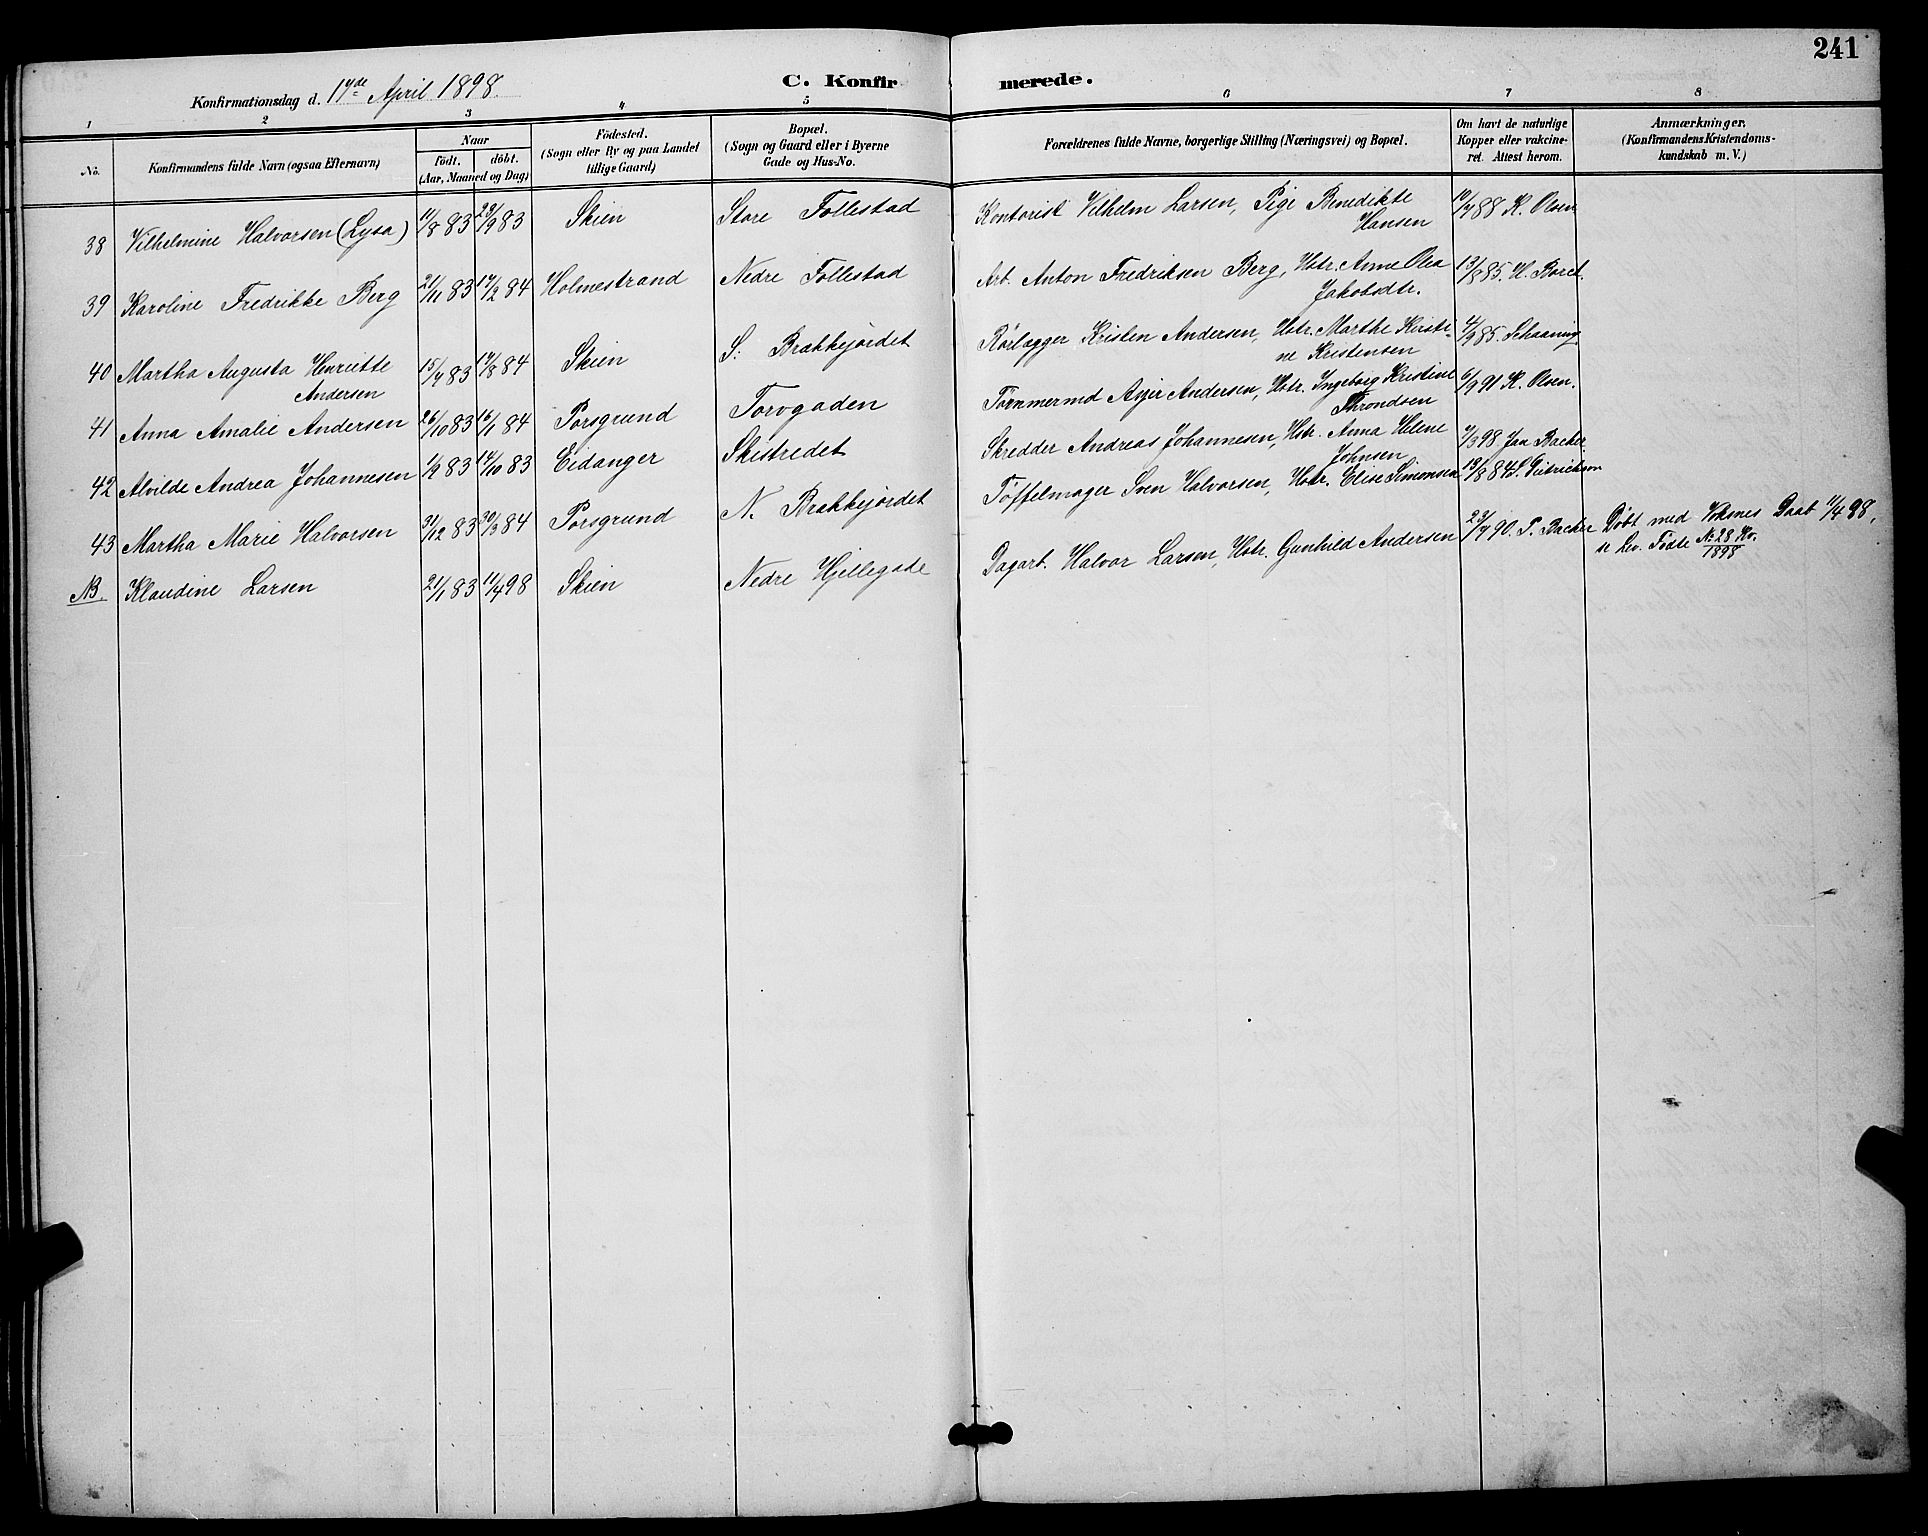 241
Konfirmationsdag d. 17de April 1898.
C. Konfirmerede.
1 2 3 4 5 6 7 8
No.
Konfirmandens fulde Navn (ogsaa Efternavn)
Naar
födt. döbt.
(Aar, Maaned og Dag)
Födested.
(Sogn eller By og paa Landet
tillige Gaard)
Bopæl.
(Sogn og Gaard eller i Byerne
Gade og Hus-No.
Forældrenes fulde Navne, borgerlige Stilling (Næringsvei) og Bopæl.
Om havt de naturlige
Kopper eller vakcine-
ret. Attest herom.
Anmærkninger,
(Konfirmandens Kristendoms-
kundskab m. V.)
38 Vilhelmine Halvorsen (Lysa) 11/8 83 23/9 83 Skien Store Follestad Kontorist Vilhelm Larsen, Pige Benedikte
Hansen 10/7 88 K. Olsen
39 Karoline Fredrikke Berg 21/11 83 17/2 84 Holmestrand Nedre Follestad Arb. Anton Fredriksen Berg, Hstr. Anne Olea
Jakobsdtr. 13/8 85. H. Boret.
40 Martha Augusta Henriette
Andersen 15/7 83 17/8 84 Skien S. Brækkejordet Rørlægger Kristen Andersen, Hstr. Marthe Kirsti-
ne Kristensen 4/9 85. Schaaning
41 Anna Amalie Andersen 26/10 83 16/1 84 Porsgrund Torvgaden Tømmermd Andersen, Hstr. Ingeborg Kristine
Throndsen 6/9 91 K. Olsen.
42 Alvilde Andrea Johannesen 1/9 83 14/10 83 Eidanger Skistredet Skredder Andreas Johannesen, Hstr. Anna Helene
Johnsen 7/3 98 Jan Backer
43 Martha Marie Halvorsen 31/12 83 30/3 84 Porsgrund N. Brækkejordet Tøffelmager Sven Halvorsen, Hstr. Elise Simonsen 19/8 84
NB. Klaudine Larsen 21/1 83 11/4 98 Skien Nedre Hjellegade Dagarb. Halvor Larsen, Hstr. Gunhild Andersen 23/7 90. P. Backer Døbt med Voksnes Daab 11/4 98,
se Lev. Fødte No 28 Kv.
1898